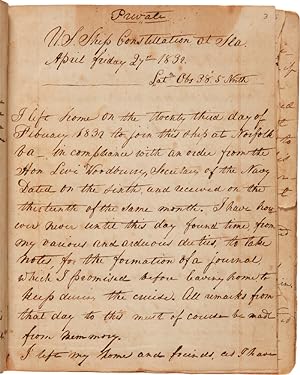 Private
U.S. Ship Constellation at Sea
April friday 27th 1832.
Latde Obs 38.5 North
I left home on the twenty third day of
February 1832 to join this ship at Norfolk
Va in compliance with an order from the
Hon Levi Woodbury, Secretary of the Navy
Dated on the sixth, and received on the
thirteenth of the same month. I have how
ever never until this day found time from
my various and arduous duties, to take
notes for the formation of a journal
which I promised before leaving home to
keep during the cruise. All remarks from
that day to this must of course be made
from memory.
I left my home and friends, as I have